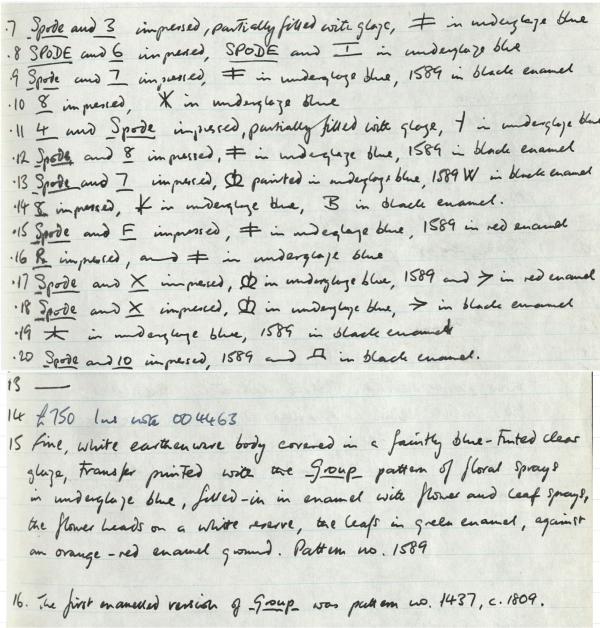 .7 Spode and 3 impressed, partially filled with glaze, ‡ in underglaze blue
.8 SPODE and 6 impressed, SPODE and I in underglaze blue
.9 Spode and 7 impressed, ‡ in underglaze blue, 1589 in black enamel
.10 8 impressed, in underglaze blue
.11 4 and Spode impressed, partially filled with glaze, in underglaze blue
.12 Spode and 8 impressed, ‡ in underglaze blue, 1589 in black enamel
.13 Spode and 7 impressed, painted in underglaze blue, 1589 W in black enamel
.14 8 impressed, in underglaze blue, B in black enamel.
.15 Spode and E impressed, ‡ in underglaze blue, 1589 in red enamel
.16 impressed, and ‡ in underglaze blue
.17 Spode and X impressed, in underglaze blue, 1589 and > in red enamel
.18 Spode and X impressed, in underglaze blue, > in black enamel
.19 in underglaze blue, 1589 in black enamel
.20 Spode and 10 impressed, 1589 and in black enamel.
13 —
14 £750 Inv note 004463
15 Fine, white earthenware body covered in a faintly blue-tinted clear
glaze, transfer printed with the Group pattern of floral sprays
in underglaze blue, filled-in in enamel with flower and leaf sprays,
the flower heads on a white reserve, the leafs in green enamel, against
an orange-red enamel ground. Pattern no. 1589
16. The first enamelled version of Group was pattern no. 1437, c.1809.